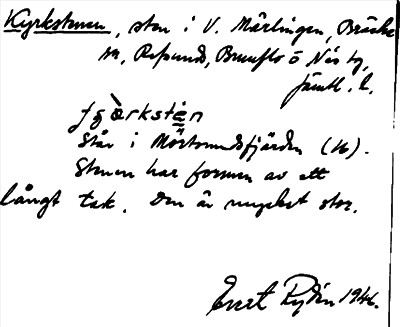 Kyrkstenen, sten i V. Mårlingen, Bräcke
sn, Refsunds, Brunflo o Näs tg,
Jämtl. l.
står i Mörtsundsfjärden (16).
Stenen har formen av ett
långt tak. Den är mycket stor.
Evert Rydén 1946.